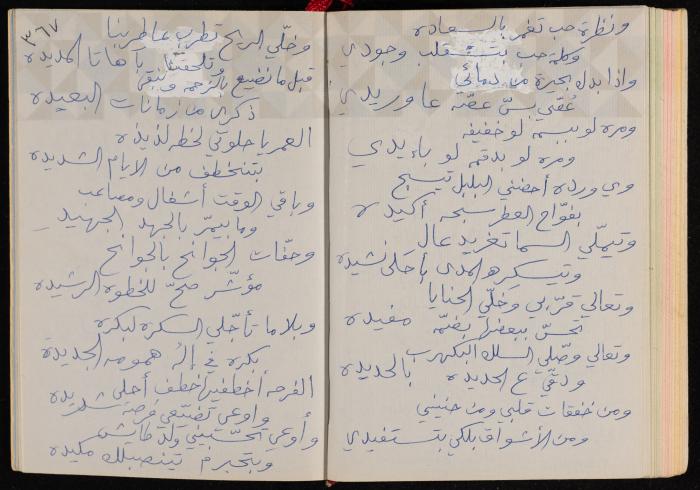 ونظرة حب تغمر بالسعاده
وكلمة حب بتشقلب وجودي
واذا بدك بحيرة من دمائي
عُقّي بسّ عضّة عا وريدي
ومره لو ببسمه لو خفيفه
ومره لو بدقمه لو بإيدي
وي ورده أحضنني البلبل تيسبح
بفوّاح العطر سبحه أكيده
وتيمّلي السما تغريد عال
وتيسكر هالمدى بأحلى نشيده
وتعالي قرّبي وخلّي الحنايا
تحسّ ببعضها بضمّه مفيده
وتعالي وصّلي السلك المكهرب
ودقّي ع الحديده بالحديده
ومن خفقات قلبي ومن حنيني
ومن الأشواق بلكي بتستفيدي
٣٦٧
وخلّي الريح تطرب عا طربنا
وتلحقنا بآهاتا المديده
قبل ما نضيع بالزحمه ونبقى
ذكرى من زمانات البعيده
العمر يا حلوتي لحظه لذيذه
بتنخطف من الايام الشديده
وباقي الوقت أشغال ومصاعب
وما بيمرّ بالجهد الجهيد
وخفّات الجوانح بالجوانح
مؤشّر صحّ للخطوه الرشيده
وبلا ما تأجّلي السكره لبكره
بكره في إلُه همومه الجديده
الفرصه أخطفيها خطف أحلى
واوعي تضيّعي فرصة شريده
وأوعي تحسّبيني ولد طايش
وبتجبرم تينصبلك مكيده